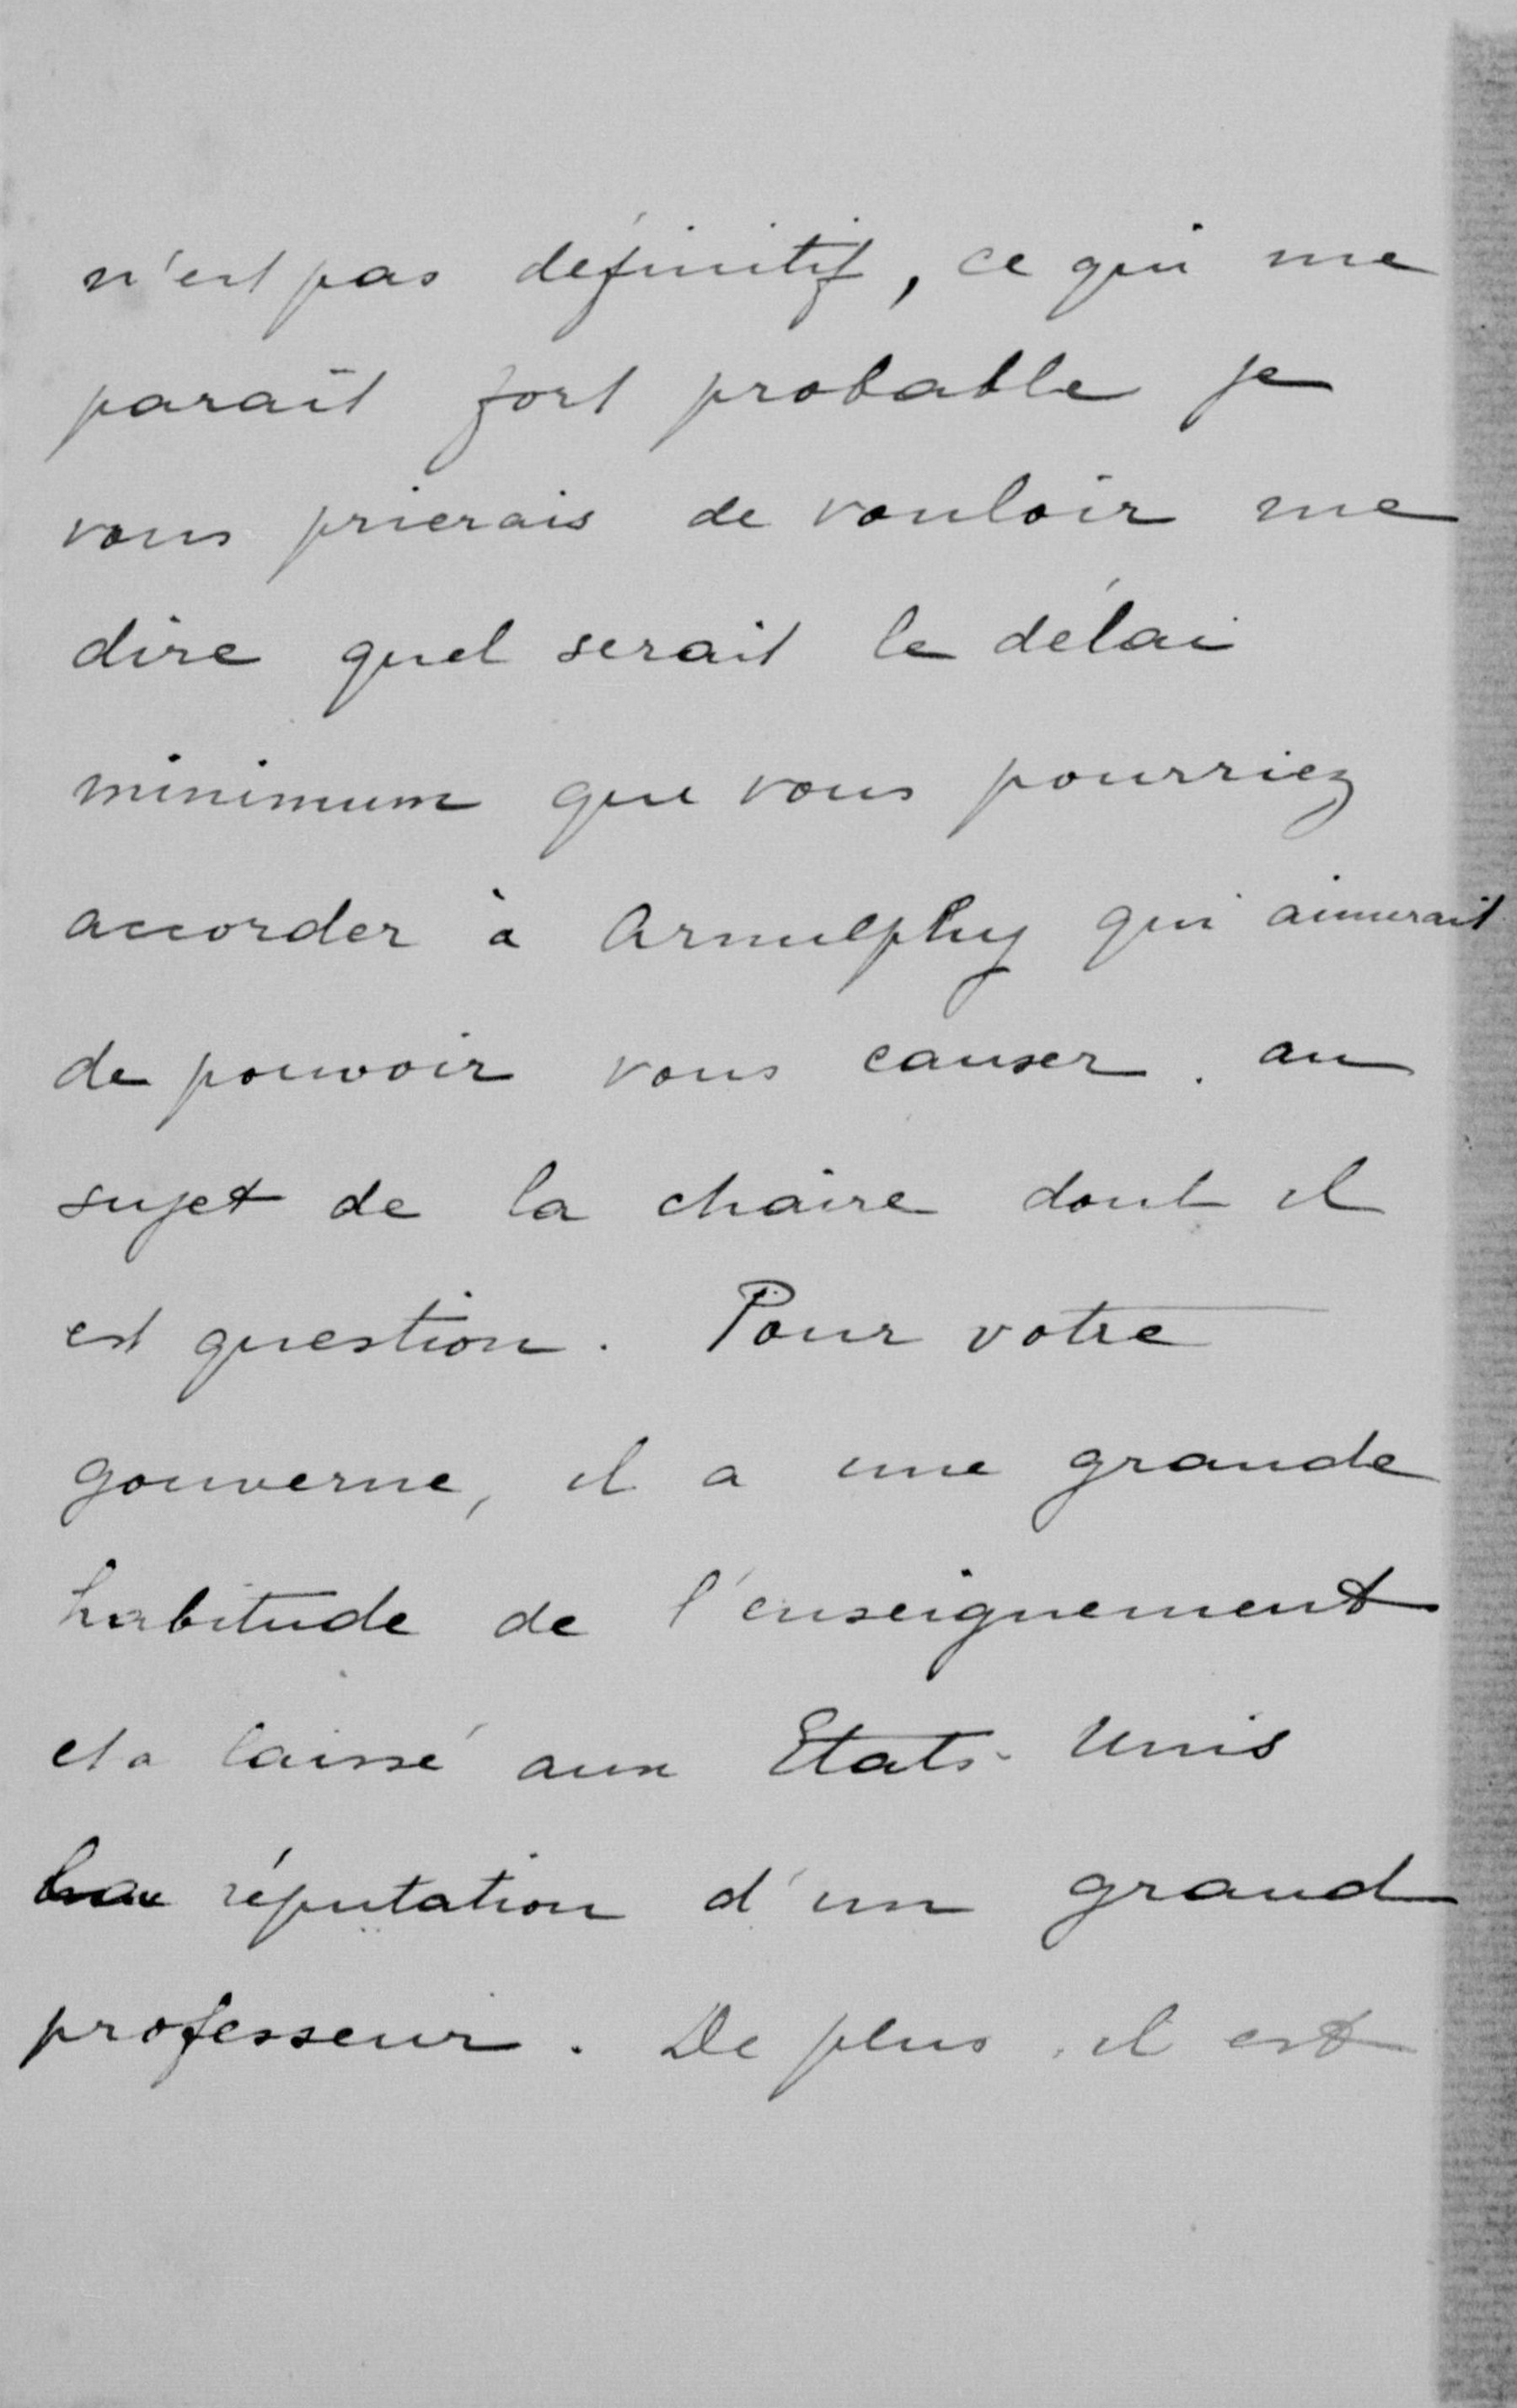 n'est pas définitif, ce qui me
parait fort probable je
vous prierais de vouloir me
dire quel serait le délai
minimum que vous pourriez
accorder à Arnulphy qui aimerait
de pouvoir vous causer. au
sujet de la chaire dont il
est question. Pour votre
gouverne, il a une grande
habitude de l'enseignement
et a laissé aux Etats-Unis
réputation d'un grand
professeur. De plus, il est